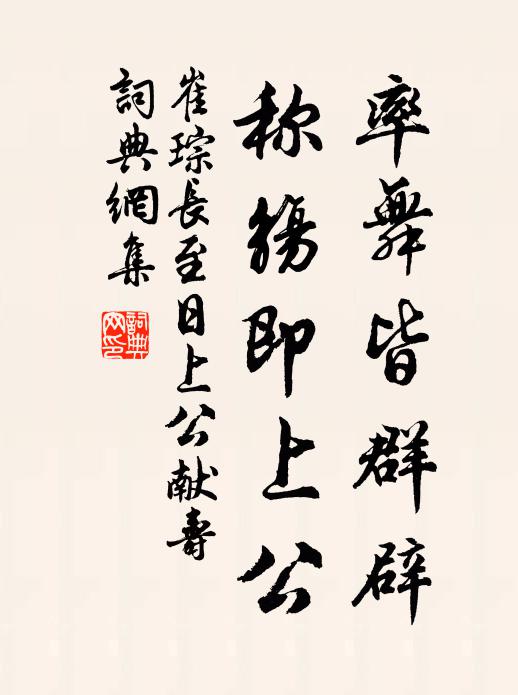 率舞皆群辟
称觞即上公
崔琮長至日上公献壽
詞典網集
詞典
网印